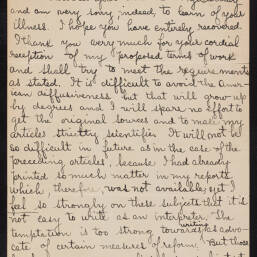 and am very sorry, indeed, to learn of your
illness. I hope you have entirely recovered.
I thank you very much for your cordial
reception of my proposed terms of work
and shall try to meet the requirements
as stated. It is difficult to avoid the Amer-
ican diffusiveness but that will grow up
by degrees and I will spare no effort to
get the original sources and to make my
articles strictly scientific. It will not be
so difficult in future as in the case of the
preceding articles, because I had already
printed so much matter in my reports
which, therefore, was not available; yet I
feel so strongly on these subjects that it is
not easy to write as an interpreter. The
temptation is too strong towards writing as advo-
cate of certain measures of reform. But those